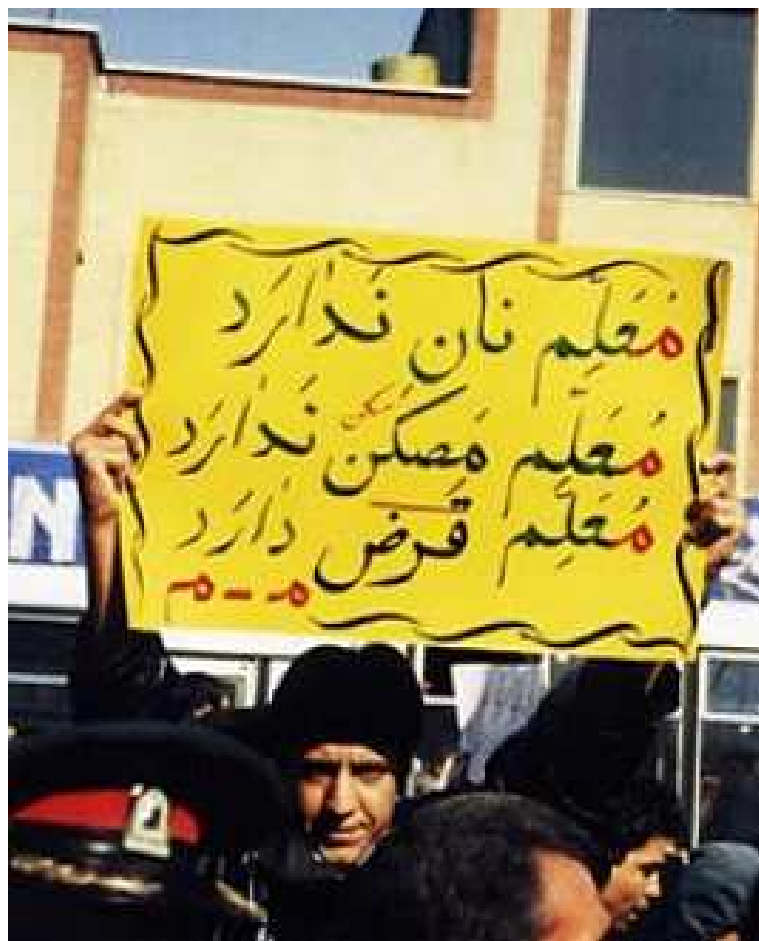 مُعَلِّم نان نَدارَد
مُعَلِّم مَصکَن نَدارَد
مُعَلِّم قَرض دارَد
م - م
N